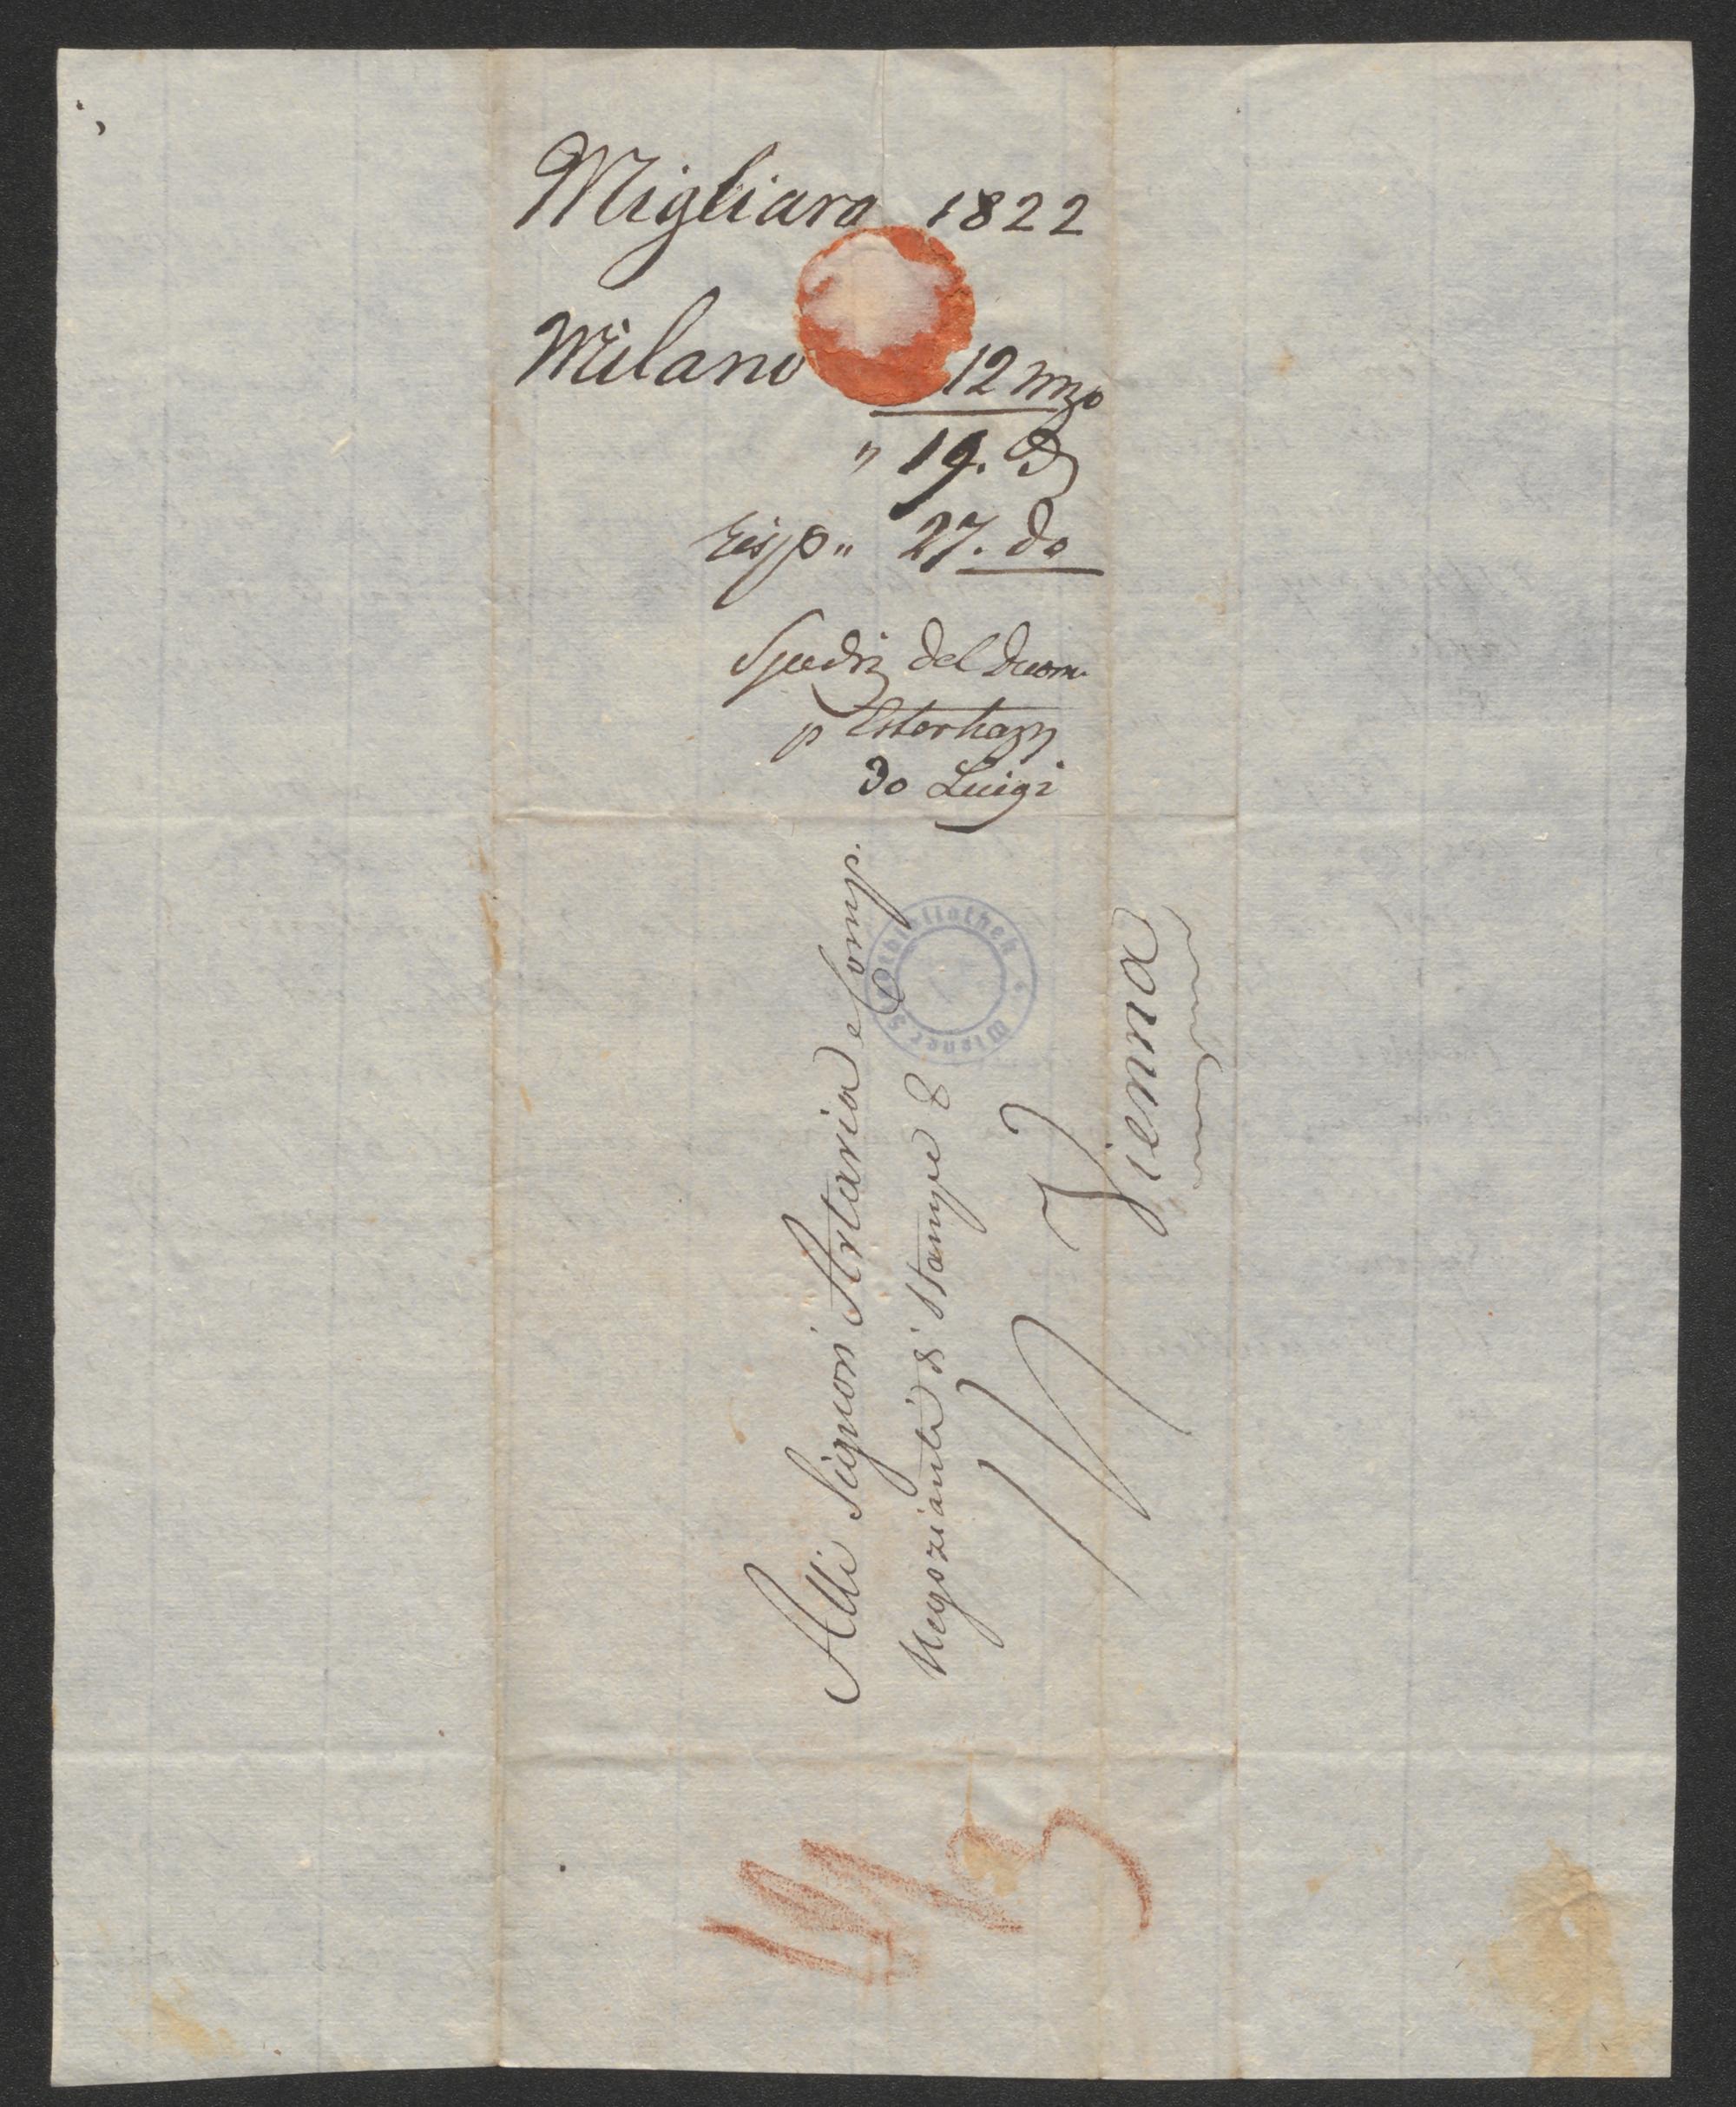 Migliara 1822
Milano 12 mzo
" 19. do
risp " 27. do
Spediz del Duom.
p Esterhazy
do Luigi
Alli Signori Artaria e Comp.
Negozianti di Stampe &
Vienna
Wiener Stadtbibliothek